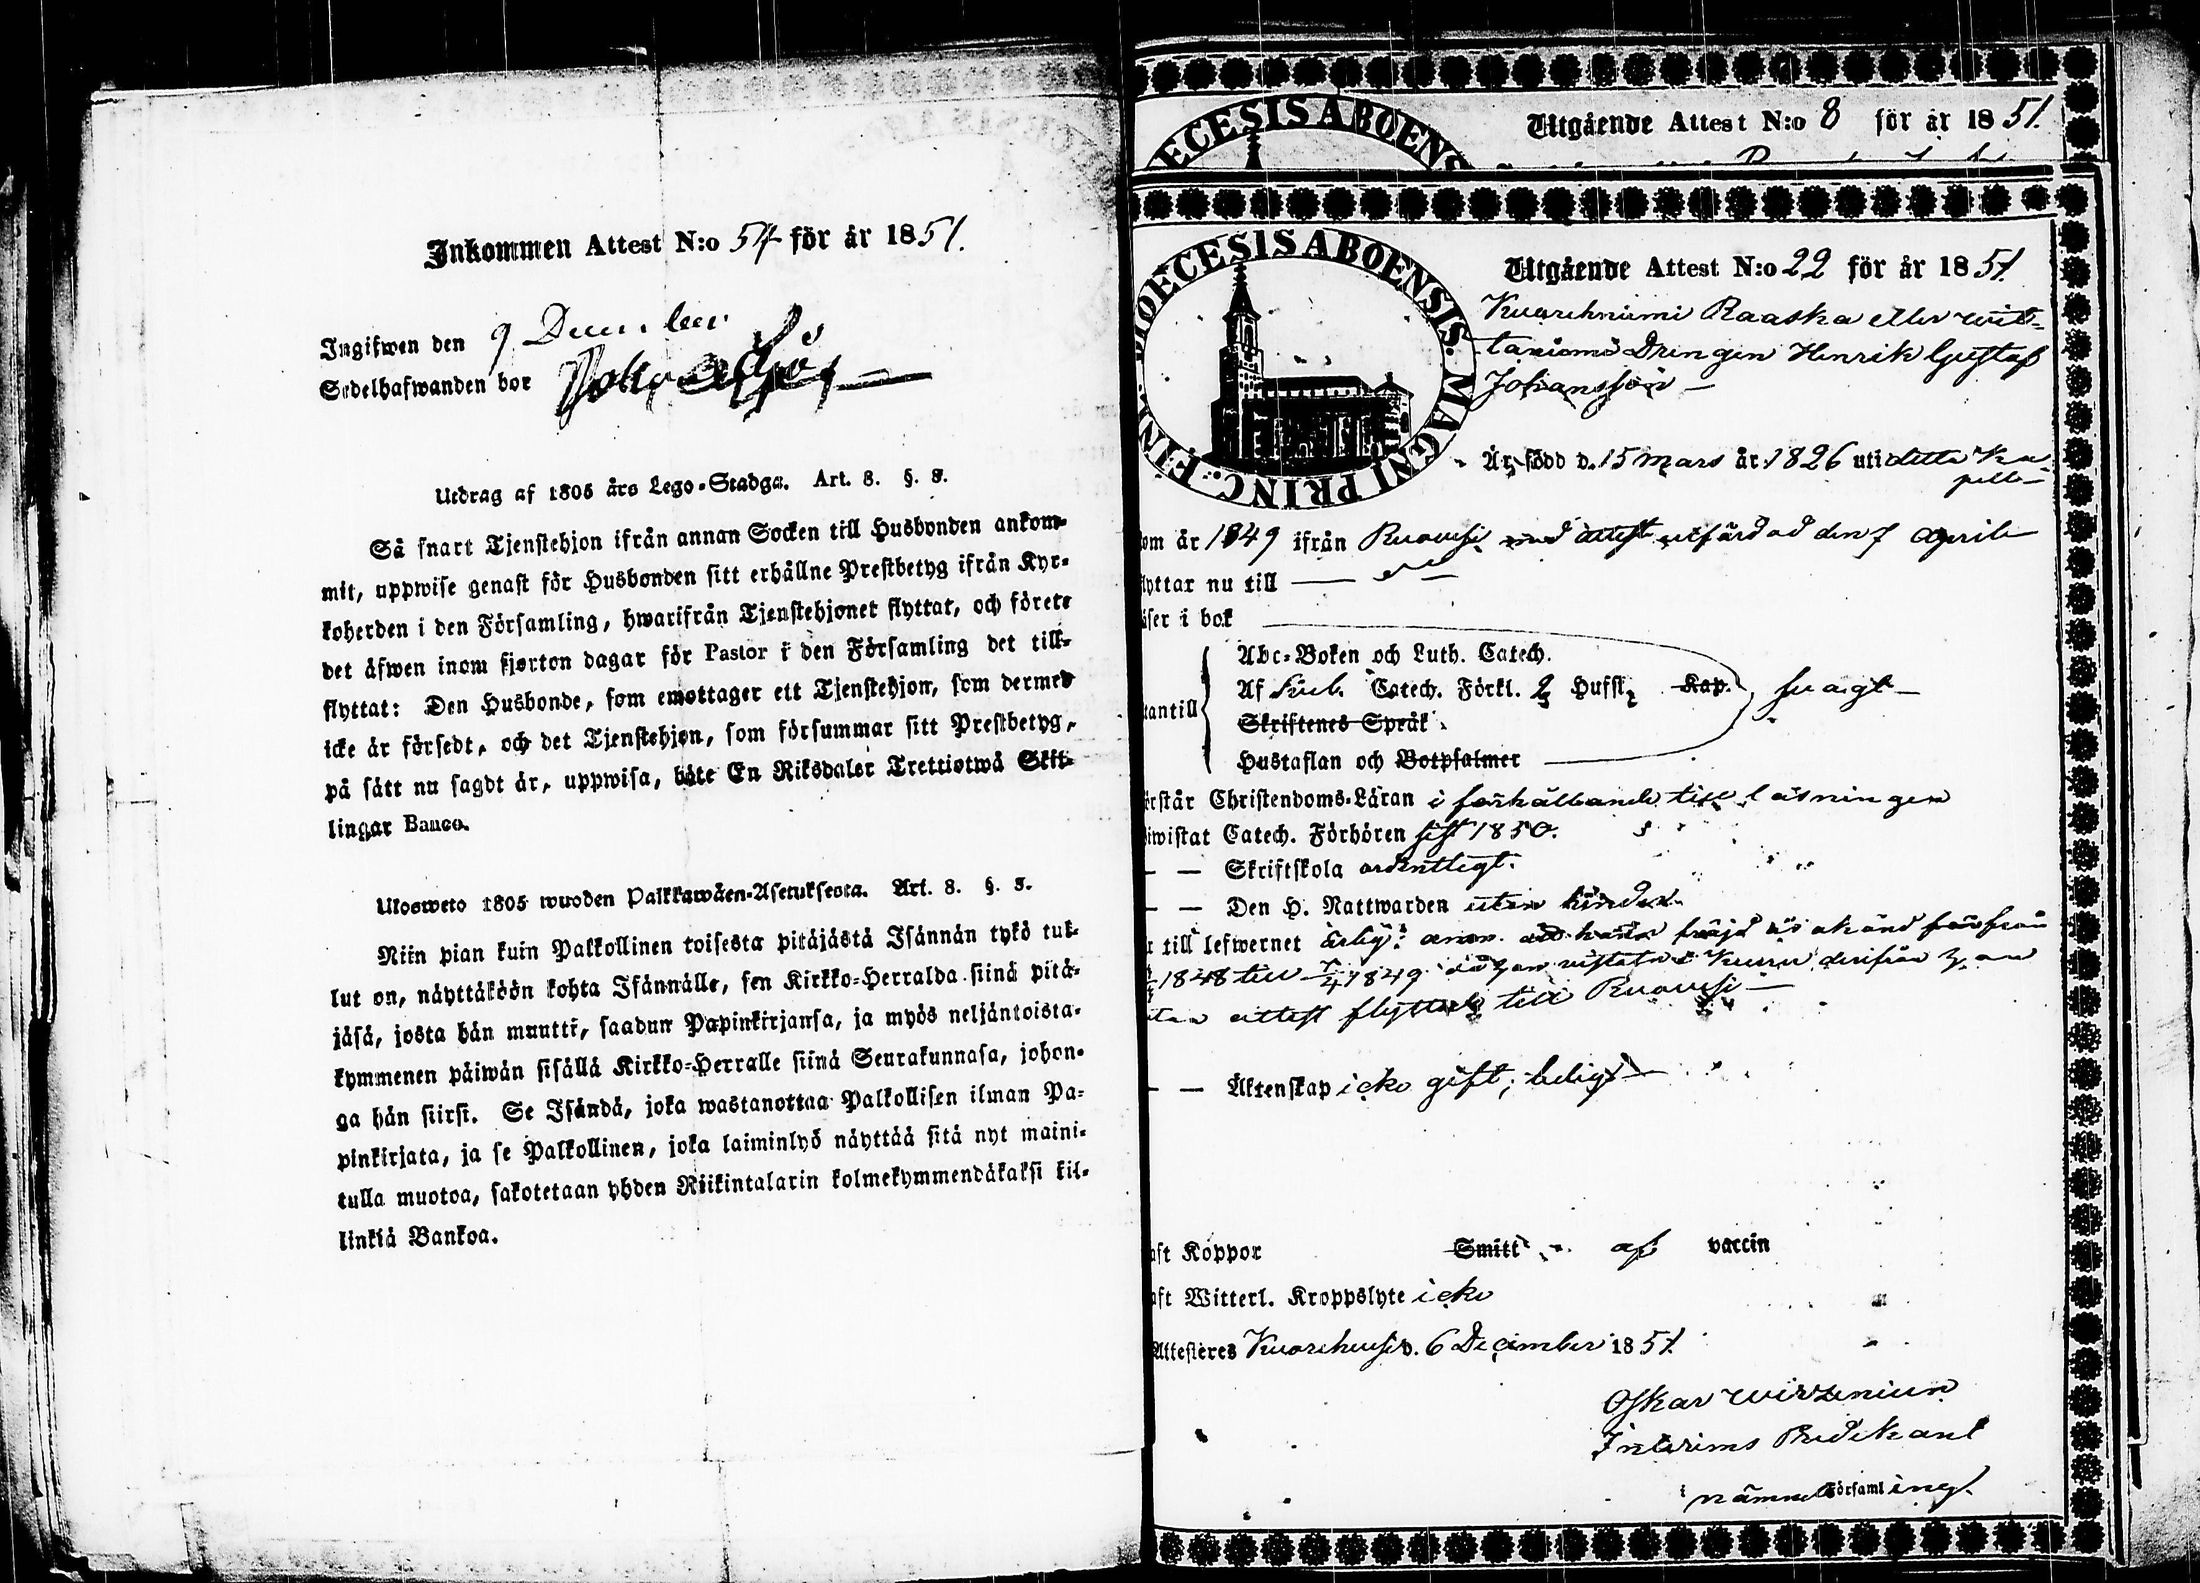 Inkommen Attest N:o 54 för år 1851.
Ingifwen den 9 December
Sedelhafwanden bor
Utdrag af 1805 års Lego-Stadga. Art. 8. §. 8.
Så snart Tjenstehjon ifrån annan Socken till Husbonden ankom-
mit, uppwise genast för Husbonden sitt erhållne Prestbetyg ifrån Kyr-
koherden i den Församling, hwarifrån Tjenstehjonet flyttat, och förete
det äfwen inom fjorton dagar för Pastor i den Församling det till-
flyttat: Den Husbonde, som emottager ett Tjenstehjon, som dermed
icke är försedt, och det Tjenstehjon, som försummar sitt Prestbetyg,
på sätt nu sagdt är, uppwisa, böte En Riksdaler Trettiotwå Skil-
lingar Banco.
Ulosweto 1805 wuoden Palkkawäen-Asetuksesta. Art. 8. §. 8.
Niin pian kuin Palkollinen toisesta pitäjästä Isännän tykö tul-
lut on, näyttäköön kohta Isännälle, sen Kirkko-Herralda siinä pitä-
jäsä, josta hän muutti, saadun Papinkirjansa, ja myös neljäntoista-
kymmenen päiwän sisällä Kirkko-Herralle siinä Seurakunnasa, johon-
ga hän siirsi. Se Isändä, joka wastanottaa Palkollisen ilman Pa-
pinkirjata, ja se Palkollinen, joka laiminlyö näyttää sitä nyt maini-
tulla muotoa, sakotetaan yhden Riikintalarin kolmekymmendäkaksi kil-
linkiä Bankoa.
ECESIS ABOENS
Utgående Attest N:o 8 för år 1851.
DIOECESIS ABOENSIS. MAGNI PRINC. FINL.
Utgående Attest N:o 22 för år 1851
Raaska eller
Drengen Henrik Gustaf
Johansson
Är född d. 15 Mars år 1826 uti detta Ka-
pell
om år 1849 ifrån med attest utfärdad den 7 April
lyttar nu till
äser i bok
Abc-Boken och Luth. Catech.
Af Catech. Förkl. 2 Husfl. Kap.
tantill svagt
Skriftenes Språk
Hustaflan och Botpsalmer
örstår Christendoms-Läran i förhållande till läsningen
iwistat Catech. Förhören sist 1850.
— — Skriftskola ordentligt.
— — Den H. Nattwarden utan hinder
r till lefwernet ärlig; anm. att hans frejd är okänd från
1848 till 1849
attest flyttade till
— — Äktenskap icke gift, ledig
aft Koppor Smitt af vaccin
aft Witterl. Kroppslyte icke
Attesteres d. 6 December 1851
Oskar Wirzenius
Interims Predikant
i nämnde Församling.